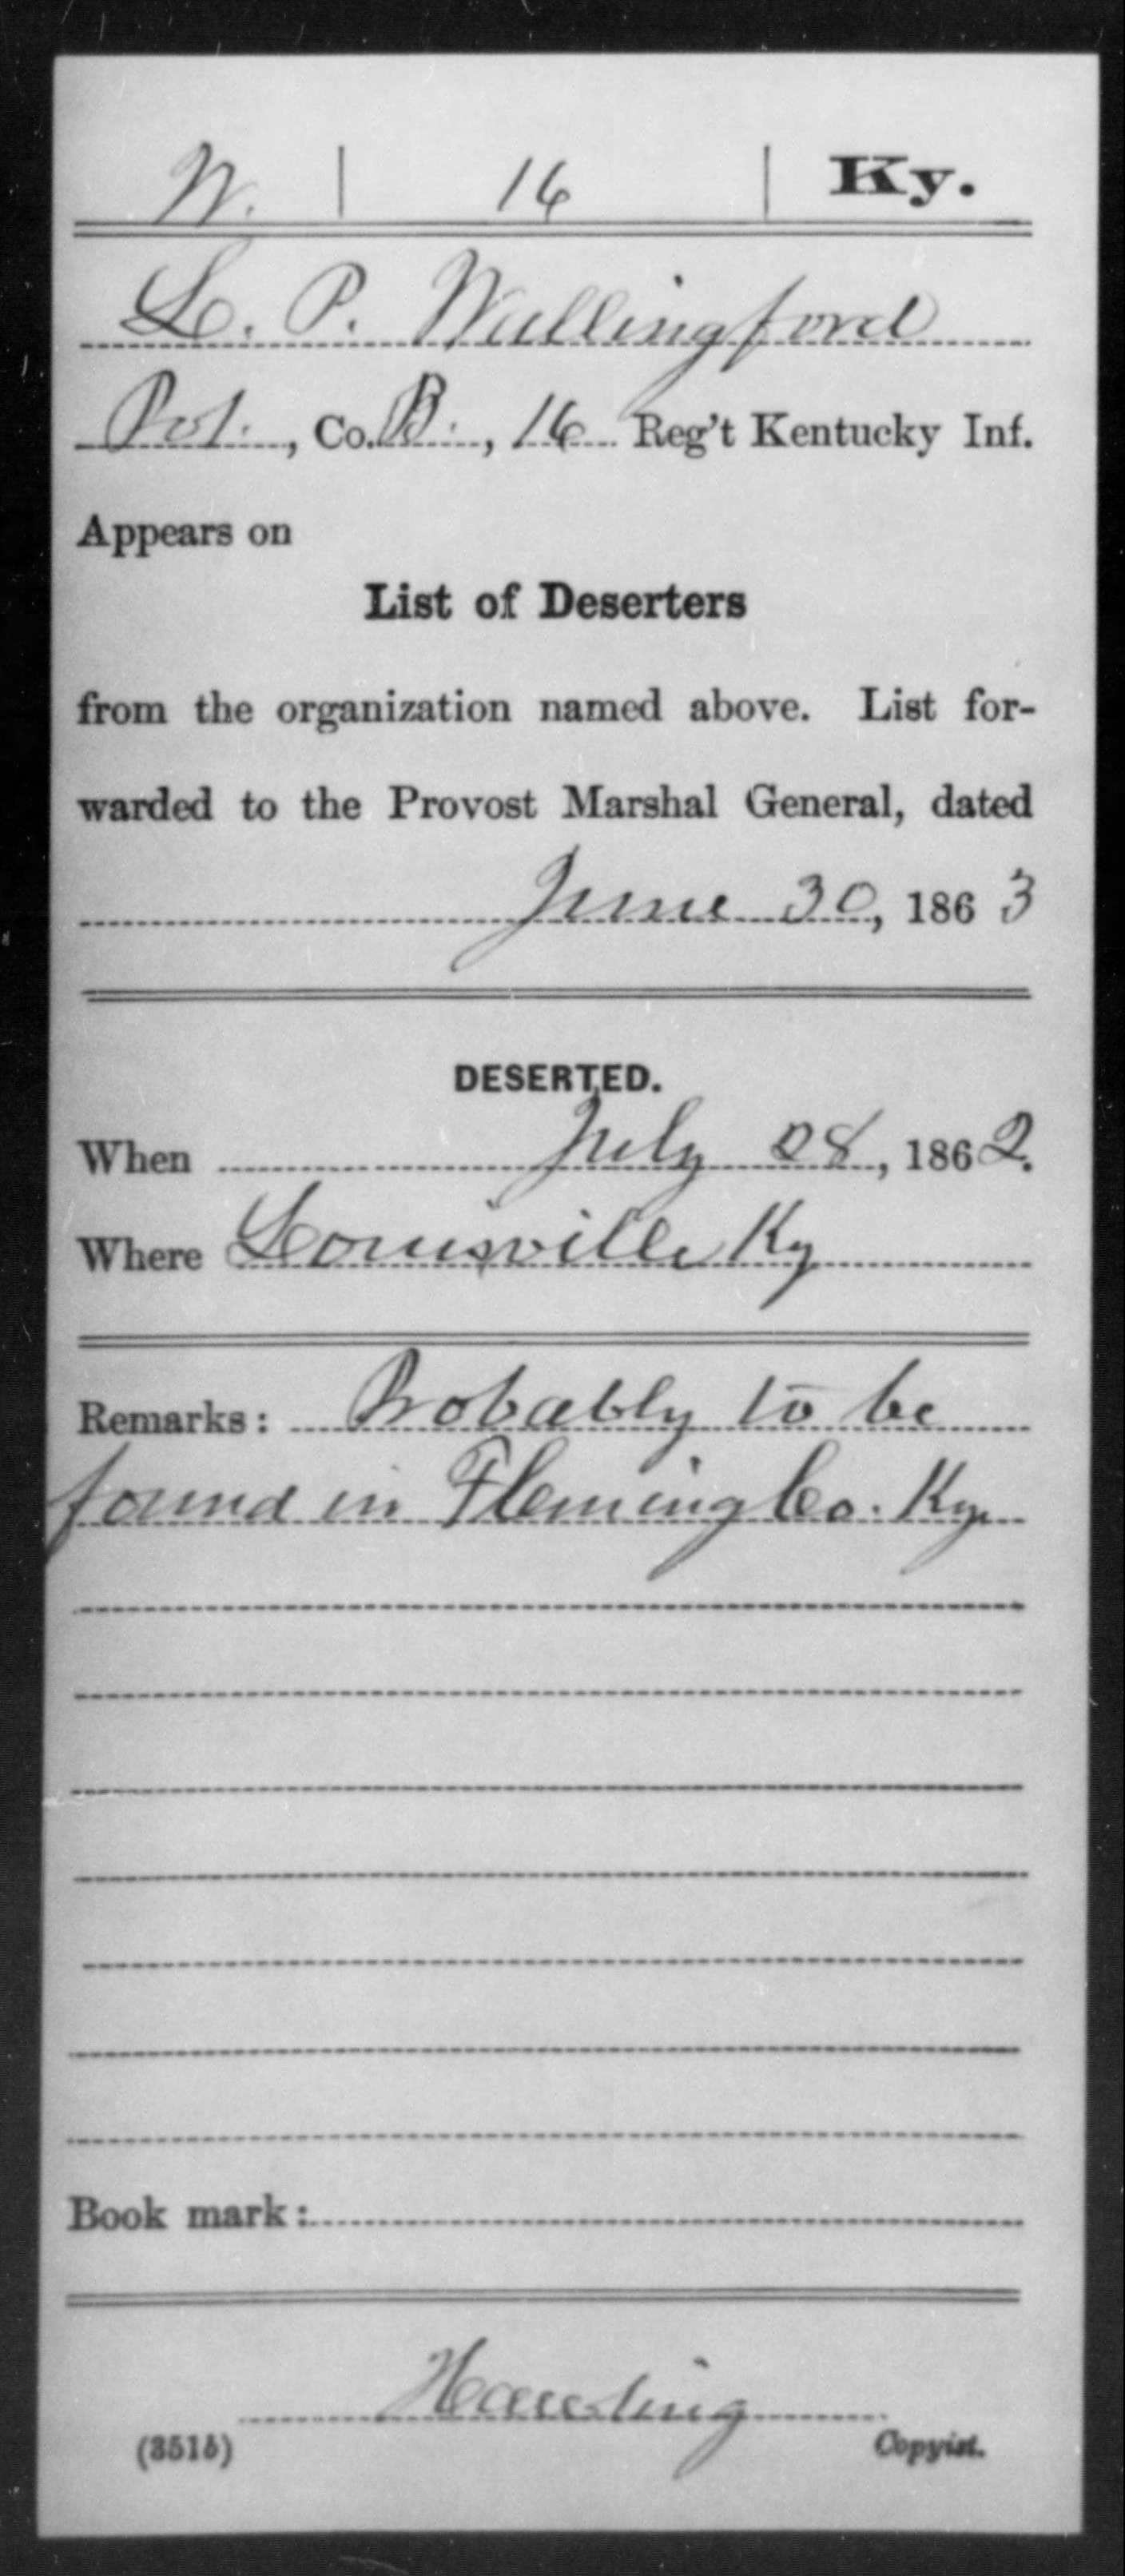 W. | 16 | Ky.
L. P. Wallingford
Pvt., Co. B., 16 Reg't Kentucky Inf.
Appears on
List of Deserters
from the organization named above. List for-
warded to the Provost Marshal General, dated
June 30, 1863
DESERTED.
When July 28, 1862.
Where Louisville Ky
Remarks: Probably to be
found in Fleming Co. Ky.
Book mark:
(351b) Copyist.